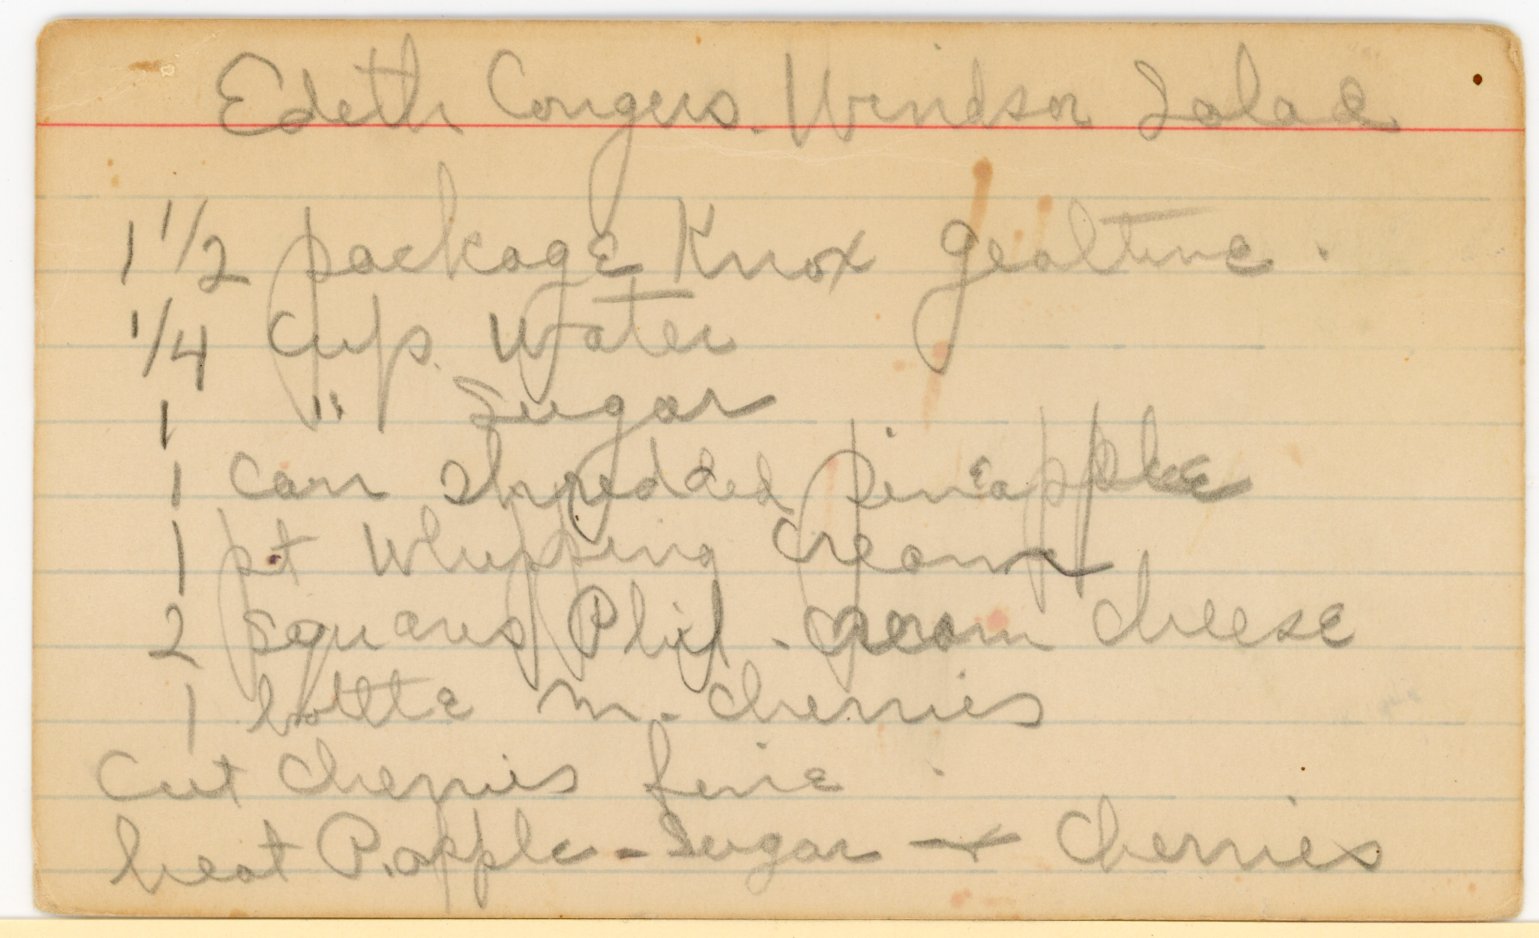 Edeth Congers. Windsor Salad
1 1/2 package Knox gealtine.
1/4 cup. Water
1 " Sugar
1 can shredded pineapple
1 pt Whipping cream
2 squares Phil. cream cheese
1 bottle M. cherries
Cut cherries fine.
heat P.apple - Sugar - + Cherries